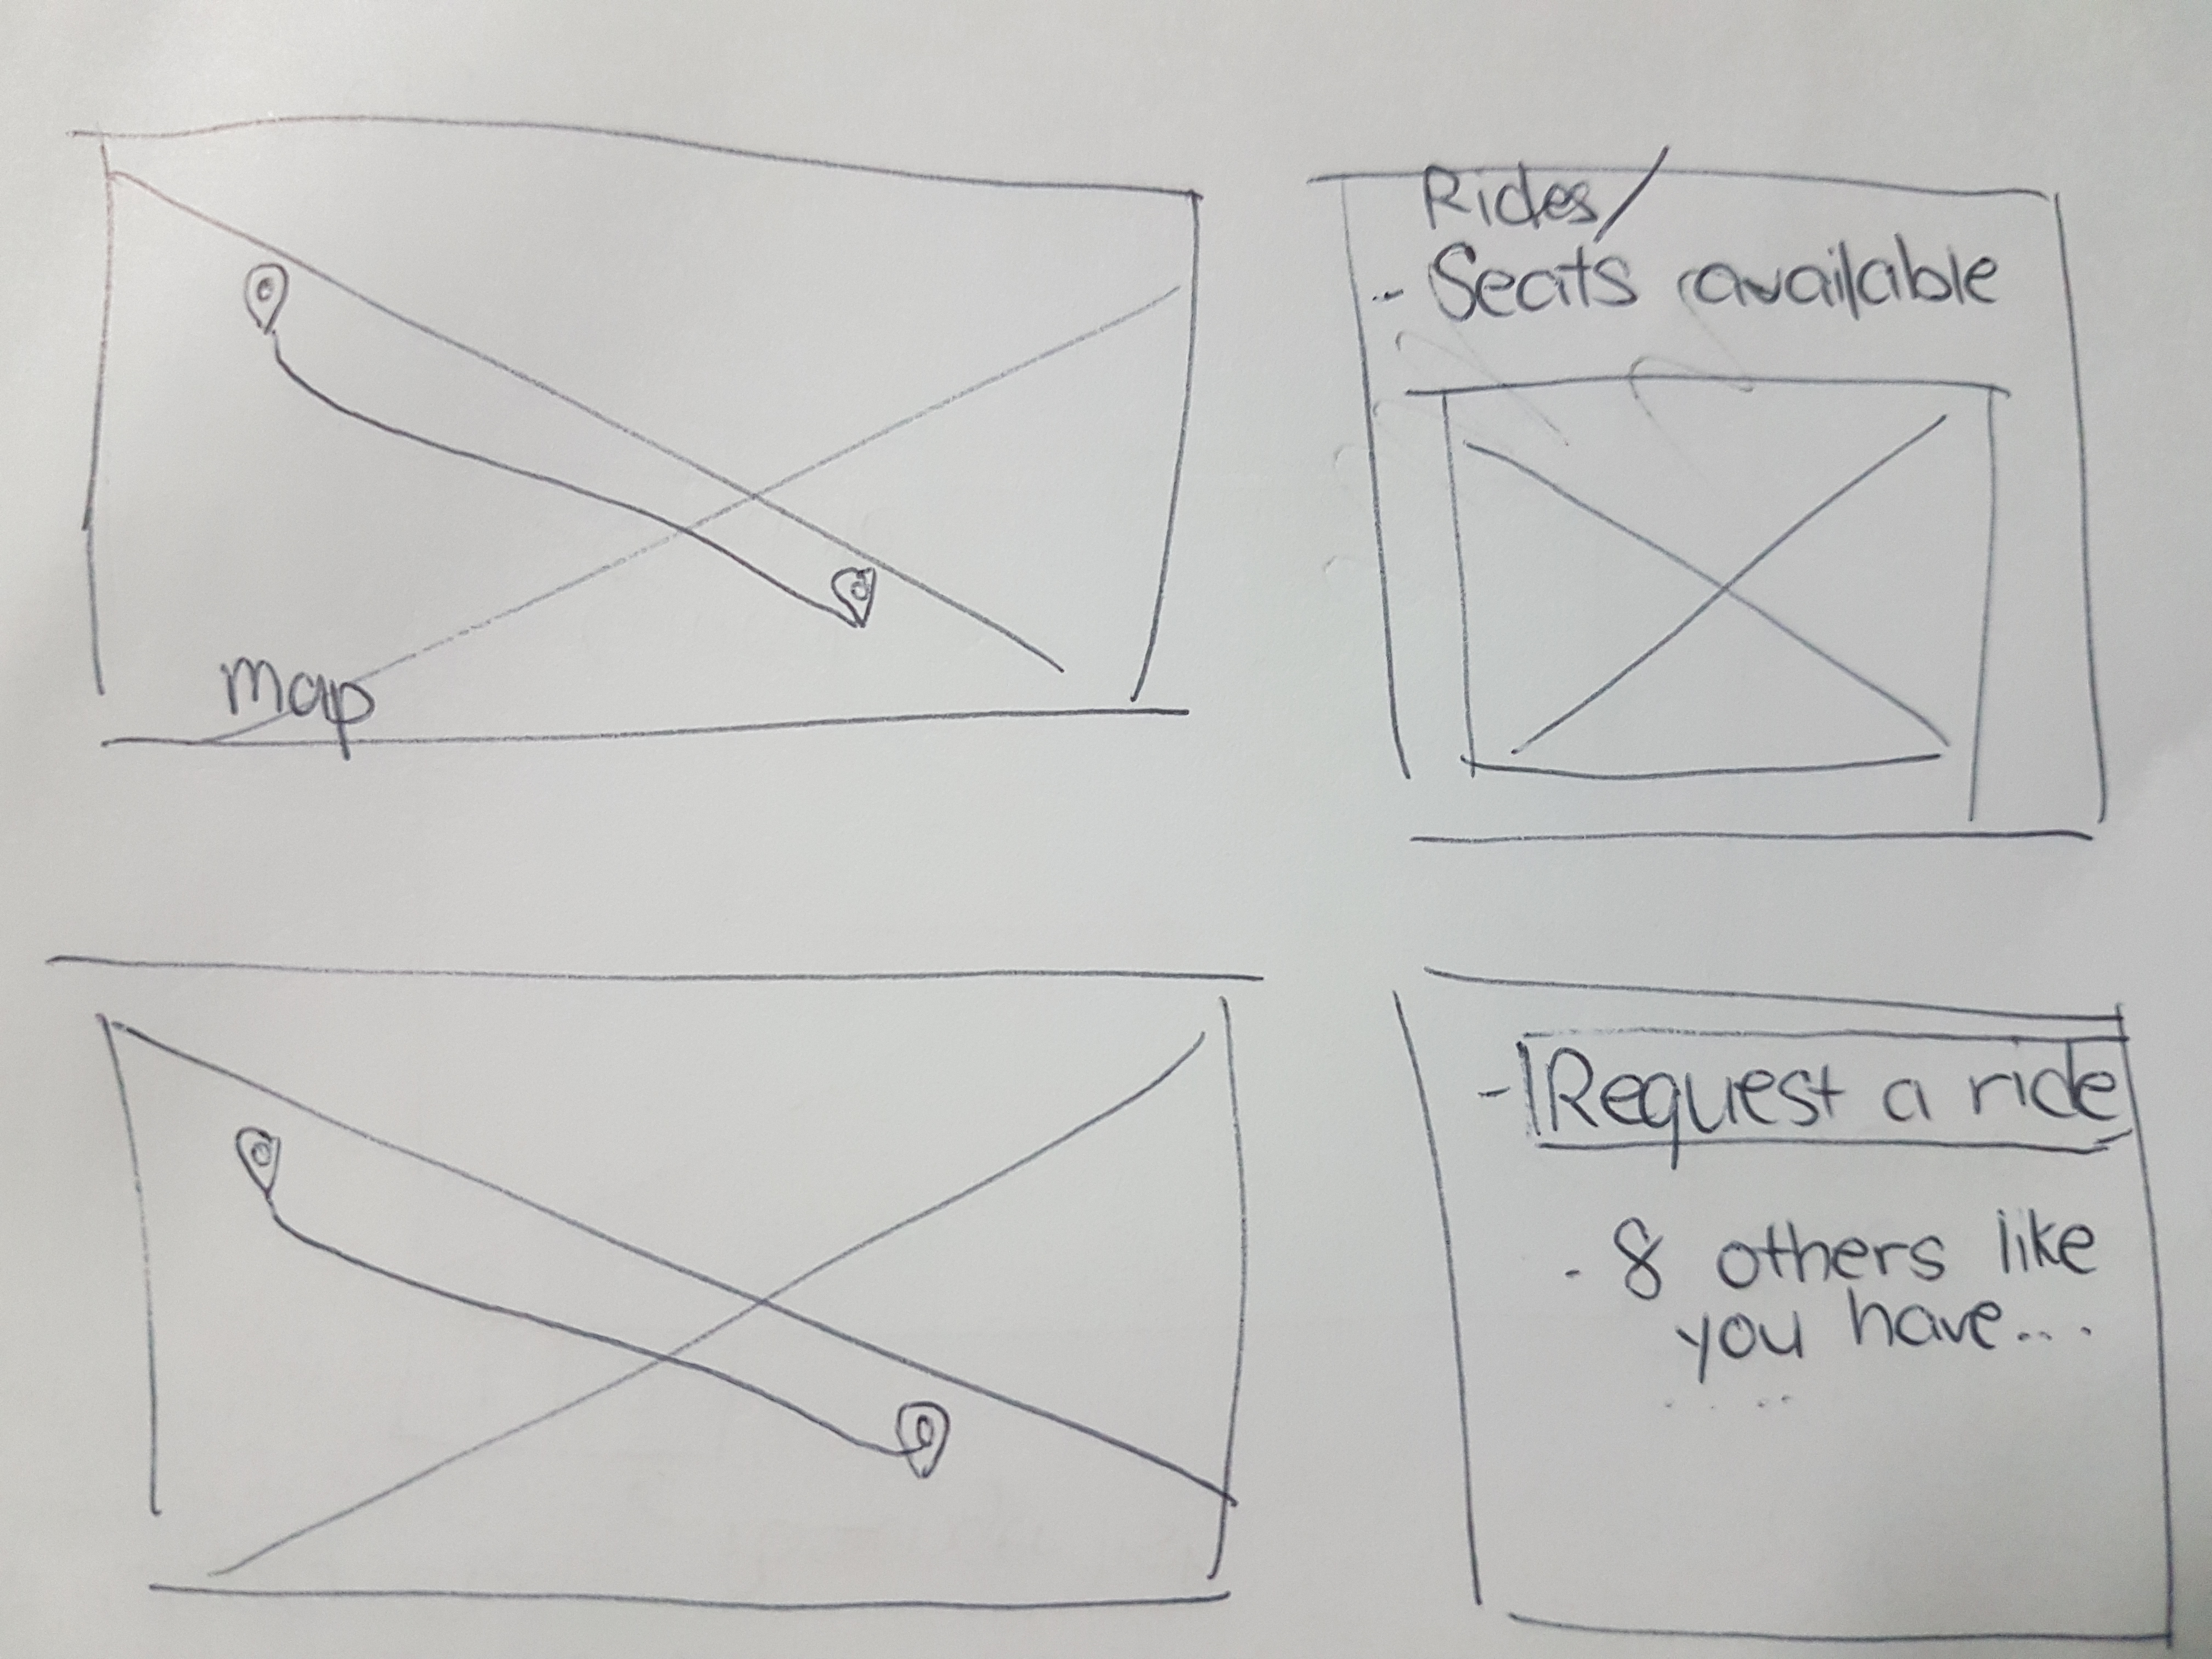 map
Rides/
- Seats available
- Request a ride
- 8 others like
you have...
.....